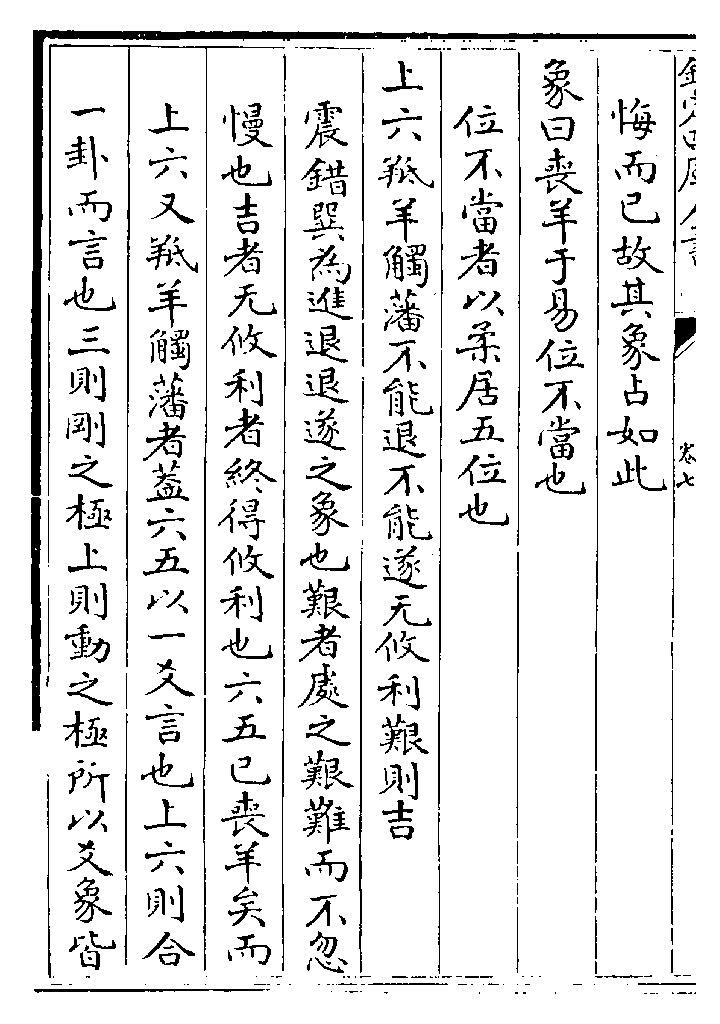 欽定四庫全書
卷七
悔而已故其象占如此
象曰喪羊于易位不當也
位不當者以柔居五位也
上六羝羊觸藩不能退不能遂无攸利艱則吉
震錯巽為進退退遂之象也艱者處之艱難而不忽
慢也吉者无攸利者終得攸利也六五已喪羊矣而
上六又羝羊觸藩者葢六五以一爻言也上六則合
一卦而言也三則剛之極上則動之極所以爻象皆